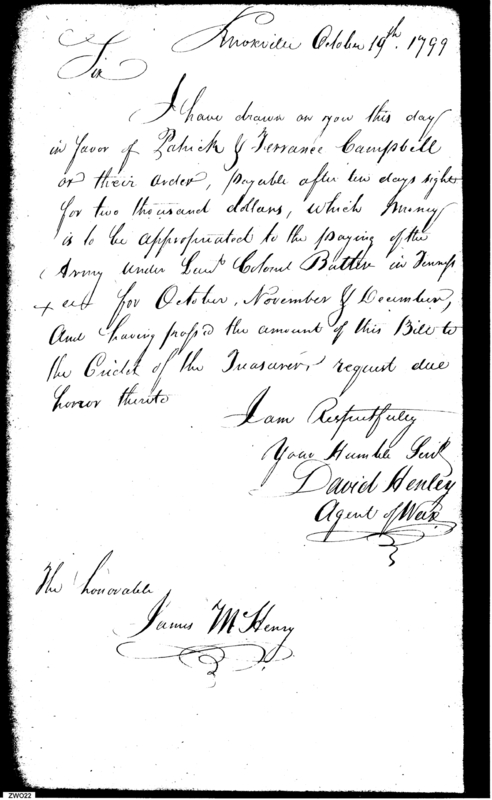 Knoxville October 19th. 1799
Sir
I have drawn on you this day
in favor of Patrick & Terrance Campbell
or their order, payable after ten days sight
for two thousand dollars, which money
is to be appropriated to the paying of the
Army under Lieut Colonel Butler in Tenness
+ ee for October, November & December,
And having pass'd the amount of this Bill to
the Credit of the Treasurer, request due
honor thereto
I am Respectfully
Your Humble Servt
David Henley
Agent of War
The honorable
James McHenry
ZWO22